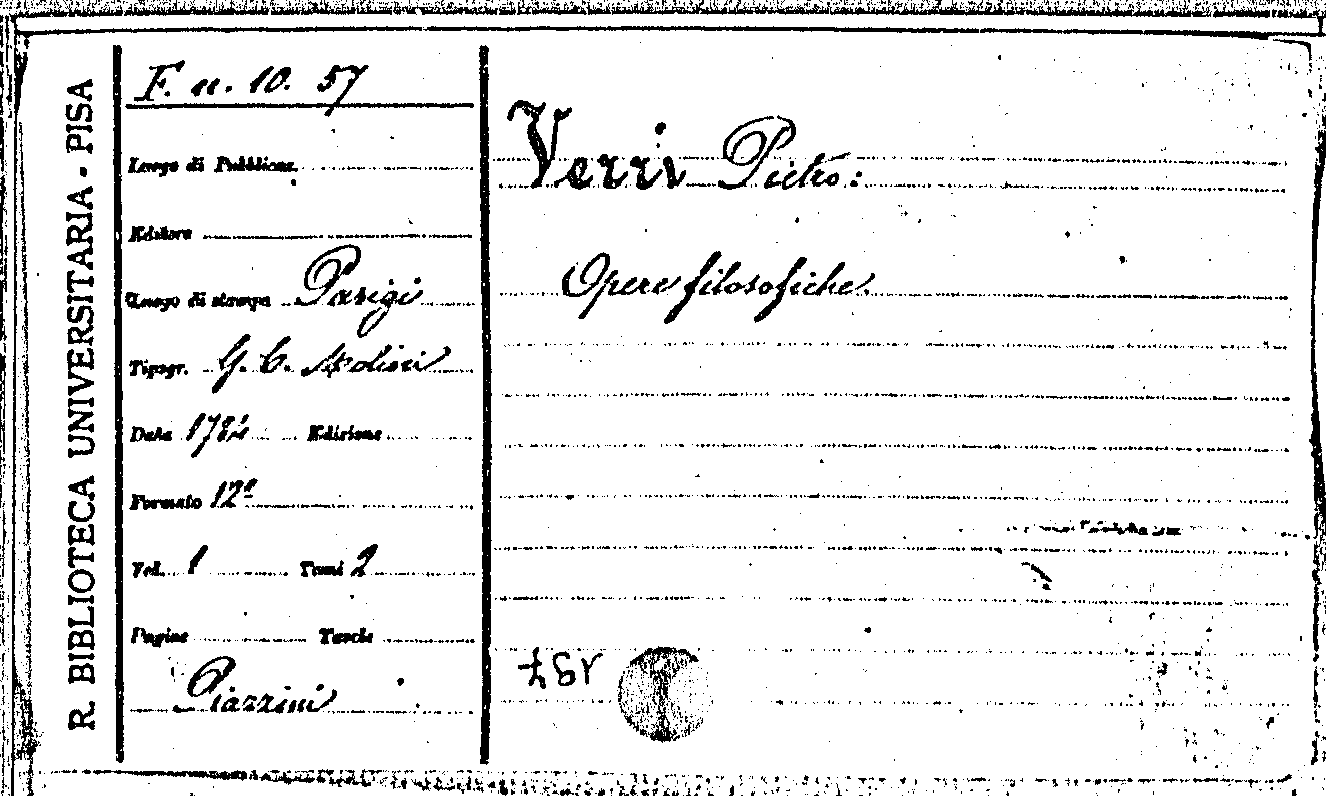 R. BIBLIOTECA UNIVERSITARIA - PISA
F. n. 10. 57
Luogo di Pubblicaz.
Editore
Luogo di stampa Parigi
Tipogr. G. C. Molini
Data 1784 Edizione
Formato 12º
Vol. 1 Tomi 2
Pagine Tavole
Piazzini
Verri Pietro:
Opere filosofiche.